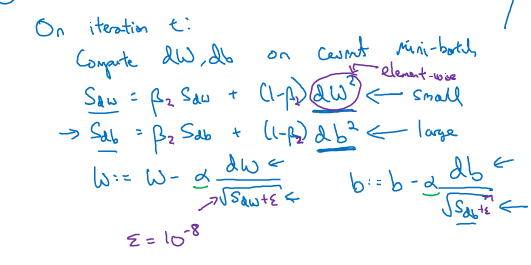 On iteration t:
Compute dW, db on current mini-batch
element-wise
S_dw = β₂ S_dw + (1-β₂) dW² ← small
→ S_db = β₂ S_db + (1-β₂) db² ← large
W := W - α dW / √(S_dw + ε) ← b := b - α db / √(S_db + ε) ←
ε = 10⁻⁸